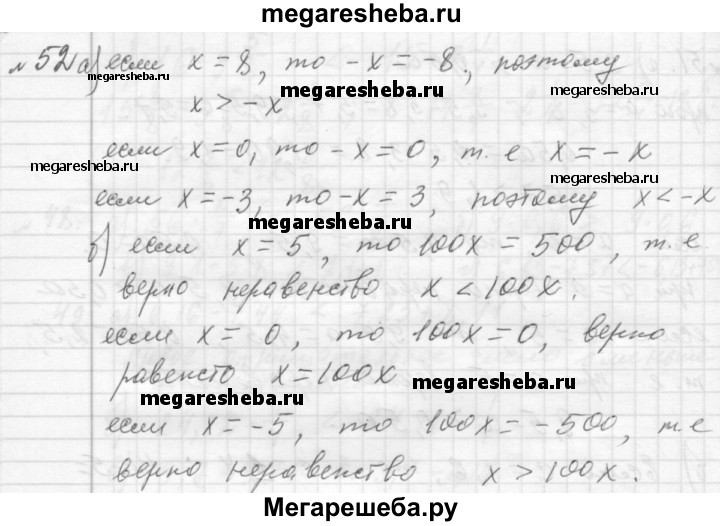 megaresheba.ru
№ 52 а) если x = 8, то - x = - 8, поэтому
megaresheba.ru
megaresheba.ru
x > - x
megaresheba.ru
если x = 0, то - x = 0, т. е x = - x
megaresheba.ru
если x = -3, то - x = 3, поэтому x < - x
megaresheba.ru
б) если x = 5, то 100x = 500, т. е.
верно неравенство x < 100x.
если x = 0, то 100x = 0, верно
равенсто x = 100x
megaresheba.ru
megaresheba.ru
если x = - 5, то 100x = - 500, т. е
верно неравенство x > 100x.
Мегарешеба.ру